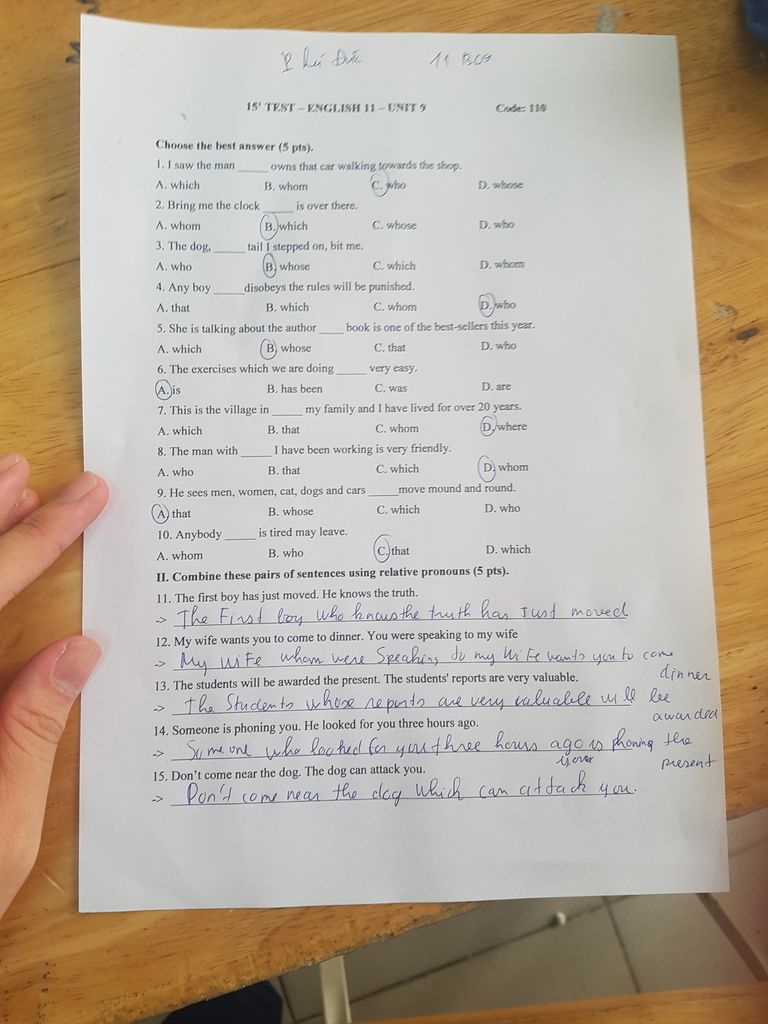 Phú Đức 11 B09
15' TEST – ENGLISH 11 – UNIT 9 Code: 110
Choose the best answer (5 pts).
1. I saw the man _____ owns that car walking towards the shop.
A. which B. whom C. who D. whose
2. Bring me the clock _____ is over there.
A. whom B. which C. whose D. who
3. The dog, _____ tail I stepped on, bit me.
A. who B. whose C. which D. whom
4. Any boy _____disobeys the rules will be punished.
A. that B. which C. whom D. who
5. She is talking about the author ____ book is one of the best-sellers this year.
A. which B. whose C. that D. who
6. The exercises which we are doing _____ very easy.
A. is B. has been C. was D. are
7. This is the village in _____ my family and I have lived for over 20 years.
A. which B. that C. whom D. where
8. The man with _____ I have been working is very friendly.
A. who B. that C. which D. whom
9. He sees men, women, cat, dogs and cars _____move mound and round.
A. that B. whose C. which D. who
10. Anybody _____ is tired may leave.
A. whom B. who C. that D. which
II. Combine these pairs of sentences using relative pronouns (5 pts).
11. The first boy has just moved. He knows the truth.
-> The First boy who knows the truth has Just moved
12. My wife wants you to come to dinner. You were speaking to my wife
-> My wiFe whom were Speaking to my WiFe wants you to come
dinner
13. The students will be awarded the present. The students' reports are very valuable.
-> the Students whose reports are very valuable will be
awarded
14. Someone is phoning you. He looked for you three hours ago.
-> Someone who looked for you three hours ago is phoning the
present
15. Don't come near the dog. The dog can attack you.
-> Don't come near the dog which can attack you.